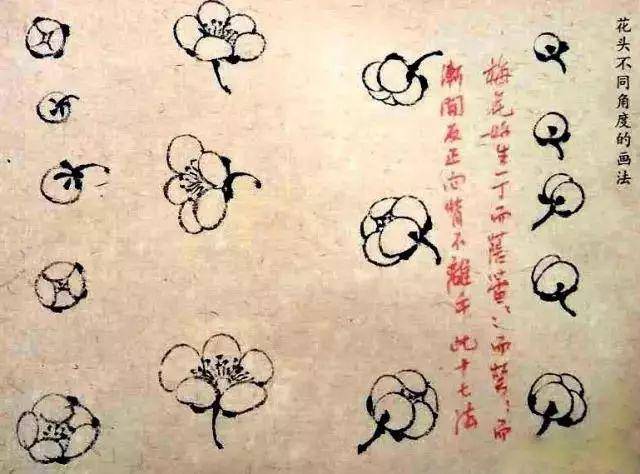 花头不同角度的画法
梅花始生一丁而蓓蕾〻而萼〻而
渐開反正向背不離乎此十七法